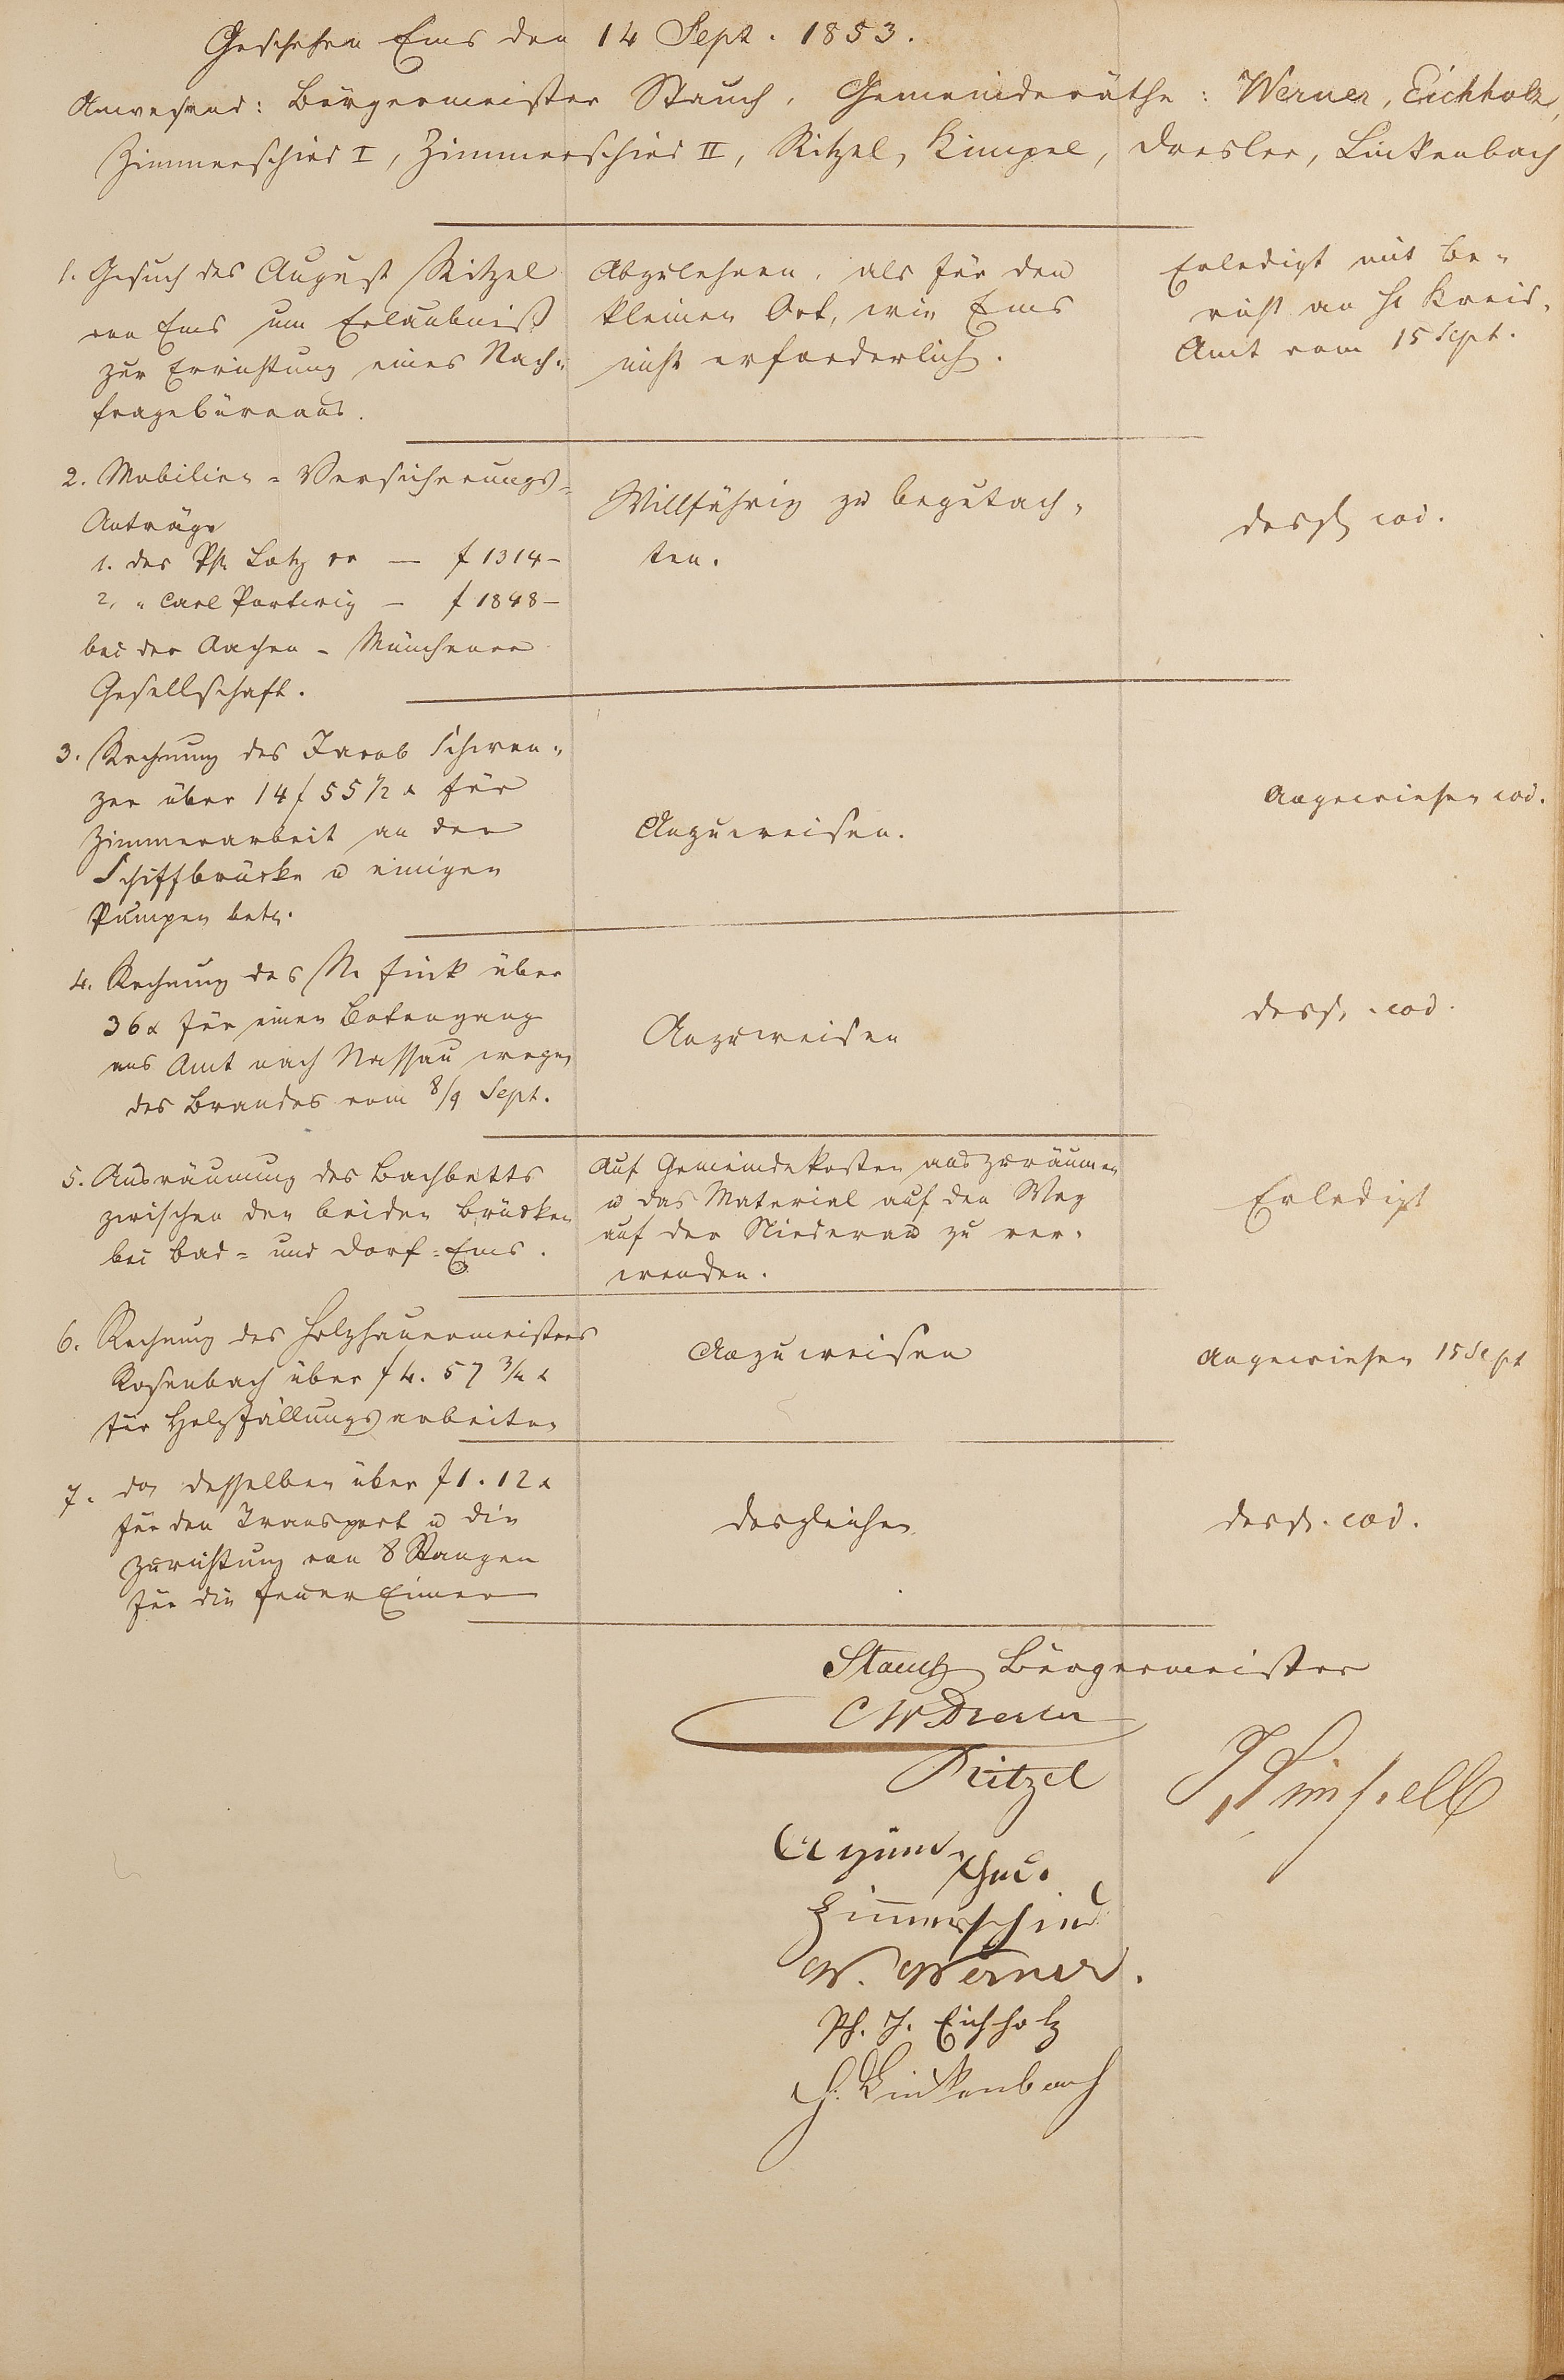 Geschehen Ems den 14 Sept. 1853.
Anwesend: Bürgermeister Stauch, Gemeinderäthe: Werner, Eichholz,
Zimmerschied I, Zimmerschied II, Ritzel, Kimpel, Dresler, Linkenbach
1. Gesuch des August Ritzel
von Ems um Erlaubniß
zur Errichtung eines Nach=
fragebüreaus.
Abzulehnen, als für den
kleinen Ort, wie Ems
nicht erforderlich.
Erledigt mit Be=
richt an H. Kreis=
Amt vom 15 Sept.
2. Mobilien=Versicherungs=
Anträge
1. des Ph. Lotz — f 1314—
2. " Carl — f 1848—
bei der Aachen=Münchener
Gesellschaft.
Willfährig zu begutach=
ten.
desgl. eod.
3. Rechnung des Jacob Schwen=
zer über 14 f 55 1/2 x für
Zimmerarbeit an der
Schiffbrücke u einigen
Pumpen betr.
Anzuweisen.
Angewiesen eod.
4. Rechnung des W. Fink über
36 x für einen Botengang
ans Amt nach Nassau wegen
des Brandes vom 8/9 Sept.
Anzuweisen
desgl. eod.
5. Ausräumung des Bachbetts
zwischen den beiden Brücken
bei Bad= und Dorf=Ems.
Auf Gemeindekosten auszuräumen
u das Material auf den Weg
auf der Niederau zu ver=
wenden.
Erledigt
6. Rechnung des Holzhauermeisters
Rosenbach über f 4. 57 3/4 x
für Holzfällungsarbeiten
Anzuweisen
Angewiesen 15 Sept
7. do desselben über f 1. 12 x
für den Transport u die
Zurichtung von 8 Stangen
für die Feuer Eimer
desgleichen
desgl. eod.
Stauch Bürgermeister
C W Dresler
Ritzel
J Kimpell
Zimmerschied
W. Werner.
Ph. J. Eichholz
Linkenbach